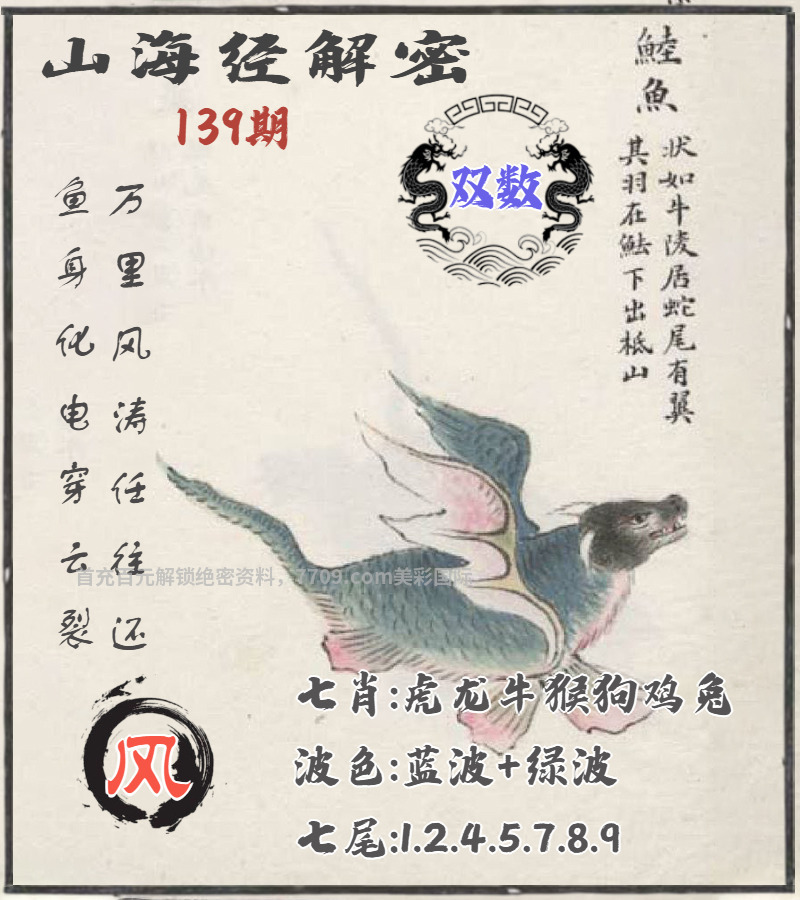 山海经解密
139期
双数
鯥魚
状如牛陵居蛇尾有翼
其羽在魼下出柢山
万里风涛任往还
鱼身化电穿云裂
首充百元解锁绝密资料，7709.com美彩国际
风
七肖:虎龙牛猴狗鸡兔
波色:蓝波+绿波
七尾:1.2.4.5.7.8.9